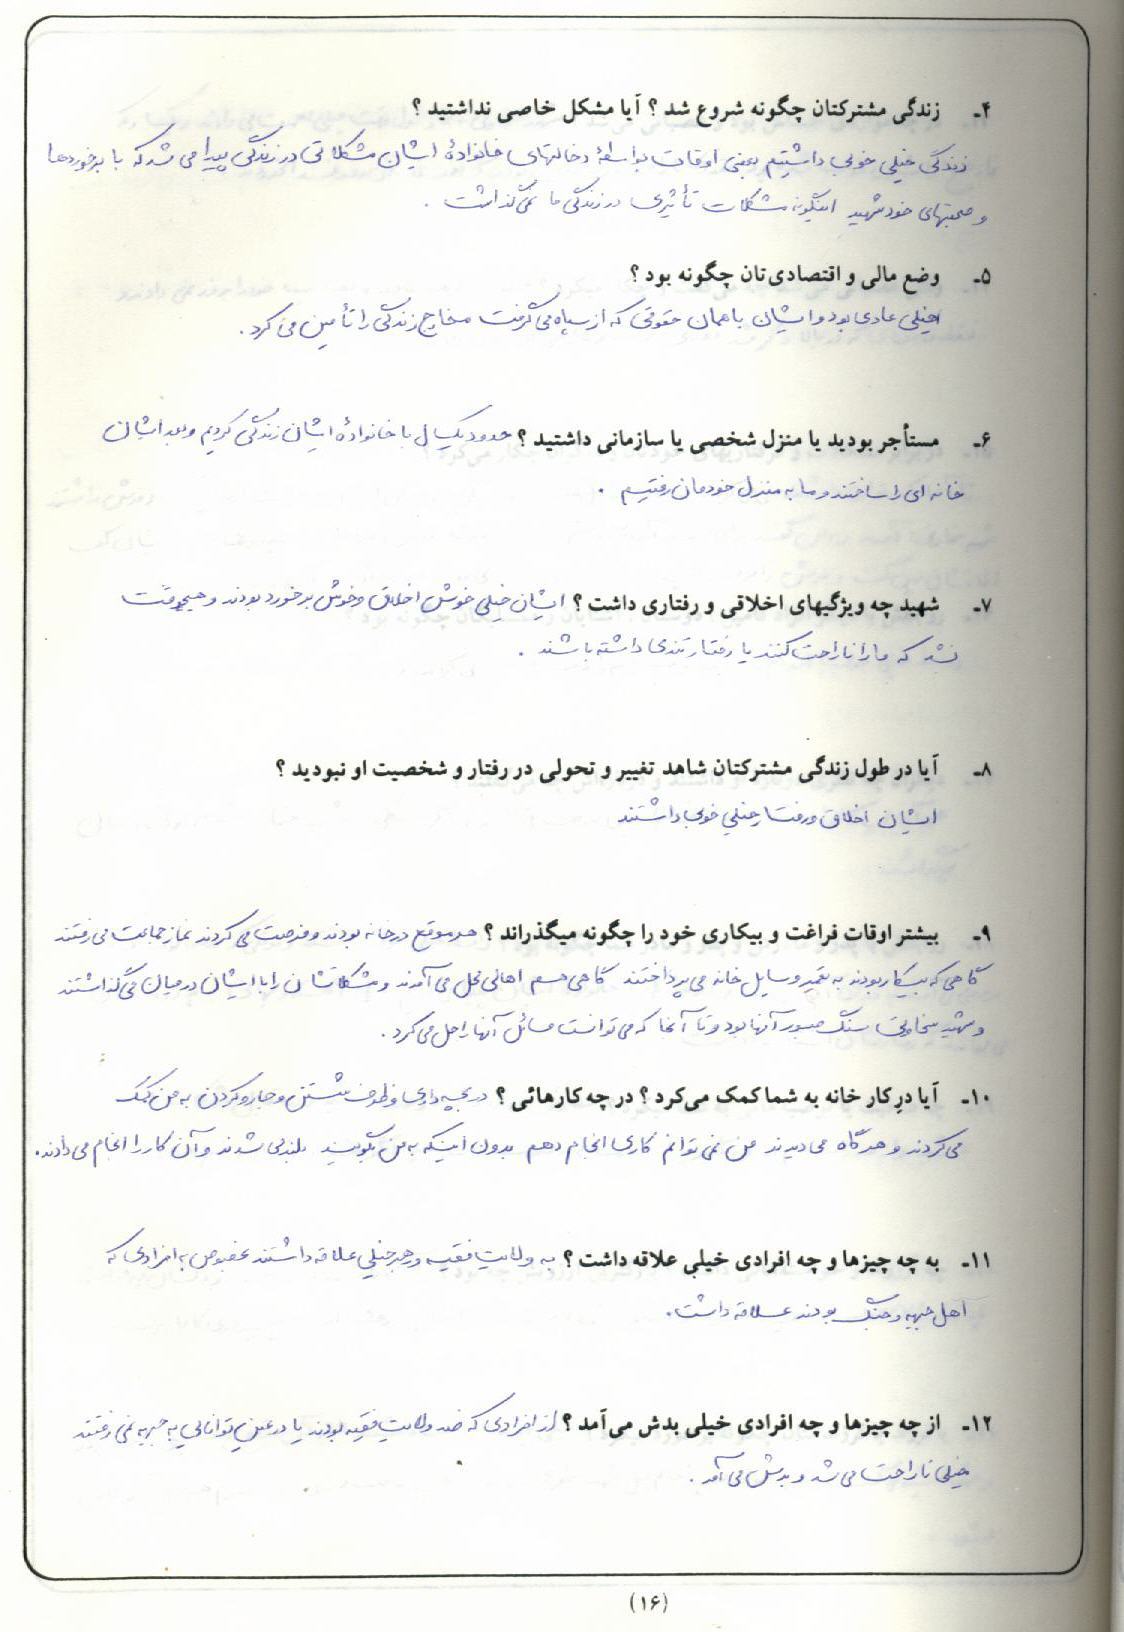 ۴ـ زندگی مشترکتان چگونه شروع شد ؟ آیا مشکل خاصی نداشتید ؟
زندگی خیلی خوبی داشتیم بعضی اوقات بواسطهٔ دخالتهای خانوادهٔ ایشان مشکلاتی در زندگی پیدا می شد که با برخوردها
و صحبتهای خود شهید اینگونه مشکلات تأثیری در زندگی ما نمی گذاشت .
۵ـ وضع مالی و اقتصادی‌تان چگونه بود ؟
خیلی عادی بود و ایشان با همان حقوقی که از سپاه می گرفت مخارج زندگی را تأمین می کرد .
۶ـ مستأجر بودید یا منزل شخصی یا سازمانی داشتید ؟ حدود یکسال با خانوادهٔ ایشان زندگی کردیم و بعد ایشان
خانه ای را ساختند و ما به منزل خودمان رفتیم .
۷ـ شهید چه ویژگیهای اخلاقی و رفتاری داشت ؟ ایشان خیلی خوش اخلاق و خوش برخورد بودند و هیچوقت
نشد که ما را ناراحت کنند یا رفتار تندی داشته باشند .
۸ـ آیا در طول زندگی مشترکتان شاهد تغییر و تحولی در رفتار و شخصیت او نبودید ؟
ایشان اخلاق و رفتار خیلی خوبی داشتند
۹ـ بیشتر اوقات فراغت و بیکاری خود را چگونه میگذراند ؟ هر موقع در خانه بودند و فرصت می کردند نماز جماعت می رفتند
گاهی که بیکار بودند به تعمیر وسایل خانه می پرداختند گاهی هم اهالی محل می آمدند و مشکلاتشان را با ایشان در میان می گذاشتند
و شهید سخاوتی سنگ صبور آنها بود و تا آنجا که می توانست مسائل آنها را حل می کرد .
۱۰ـ آیا در کار خانه به شما کمک می‌کرد ؟ در چه کارهائی ؟ در بچه داری و ظرف شستن و جارو کردن به من کمک
می کردند و هرگاه می دیدند من نمی توانم کاری انجام دهم بدون اینکه به من بگویند بلند می شدند و آن کار را انجام می دادند .
۱۱ـ به چه چیزها و چه افرادی خیلی علاقه داشت ؟ به ولایت فقیه و رهبر خیلی علاقه داشتند بخصوص به افرادی که
اهل جبهه و جنگ بودند علاقه داشت .
۱۲ـ از چه چیزها و چه افرادی خیلی بدش می‌آمد ؟ از افرادی که ضد ولایت فقیه بودند یا در عین توانایی به جبهه نمی رفتند
خیلی ناراحت می شد و بدش می آمد .
(۱۶)